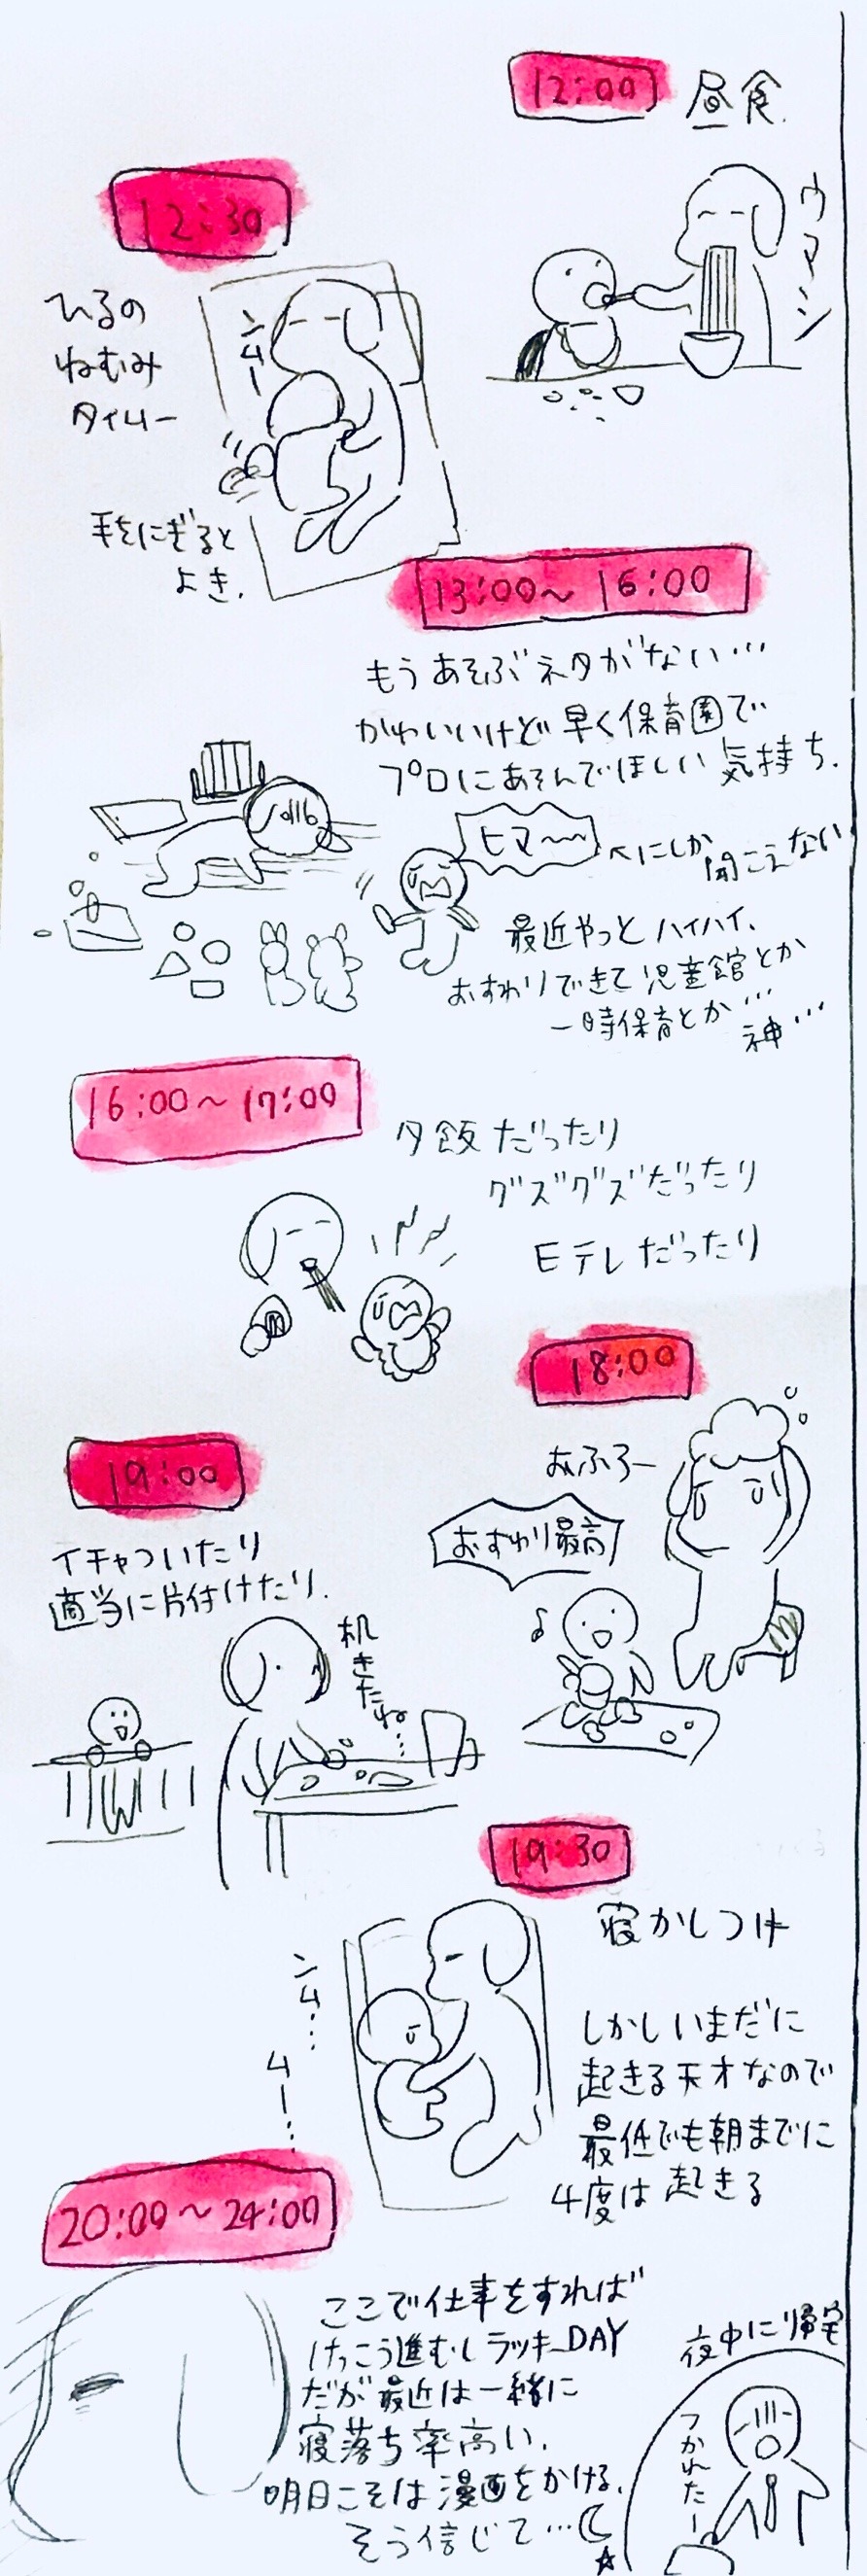 12:00
昼食.
ウマシ
12:30
ひるの
ねむみ
タイムー
ンムー
手をにぎると
よき.
13:00〜16:00
もうあそぶネタがない…
かわいいけど早く保育園で
プロにあそんでほしい気持ち.
ヒマ〜〜
←にしか聞こえない
最近やっとハイハイ、
おすわりできて児童館とか
一時保育とか…
神…
16:00〜17:00
夕飯だったり
グズグズだったり
Eテレだったり
18:00
おふろー
おすわり最高
♪
19:00
イチャついたり
適当に片付けたり.
机きたね…
19:30
寝かしつけ
ンム…
ムー…
しかしいまだに
起きる天才なので
最低でも朝までに
4度は起きる
20:00〜24:00
ここで仕事をすれば
けっこう進むしラッキーDAY
だが最近は一緒に
寝落ち率高い.
明日こそは漫画をかける.
そう信じて…
夜中に帰宅
つかれたー